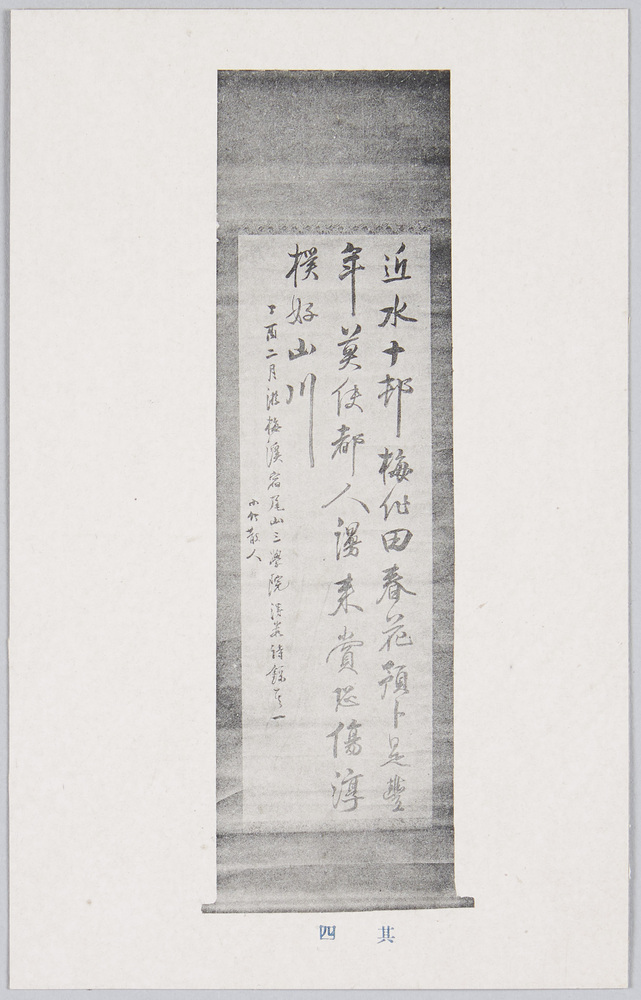 近水十邨梅代田春花預卜足豐
年莫使都人漫来賞恐傷淳
樸好山川
丁酉二月游梅溪宿尾山三學院詩録其一
小竹散人
其四